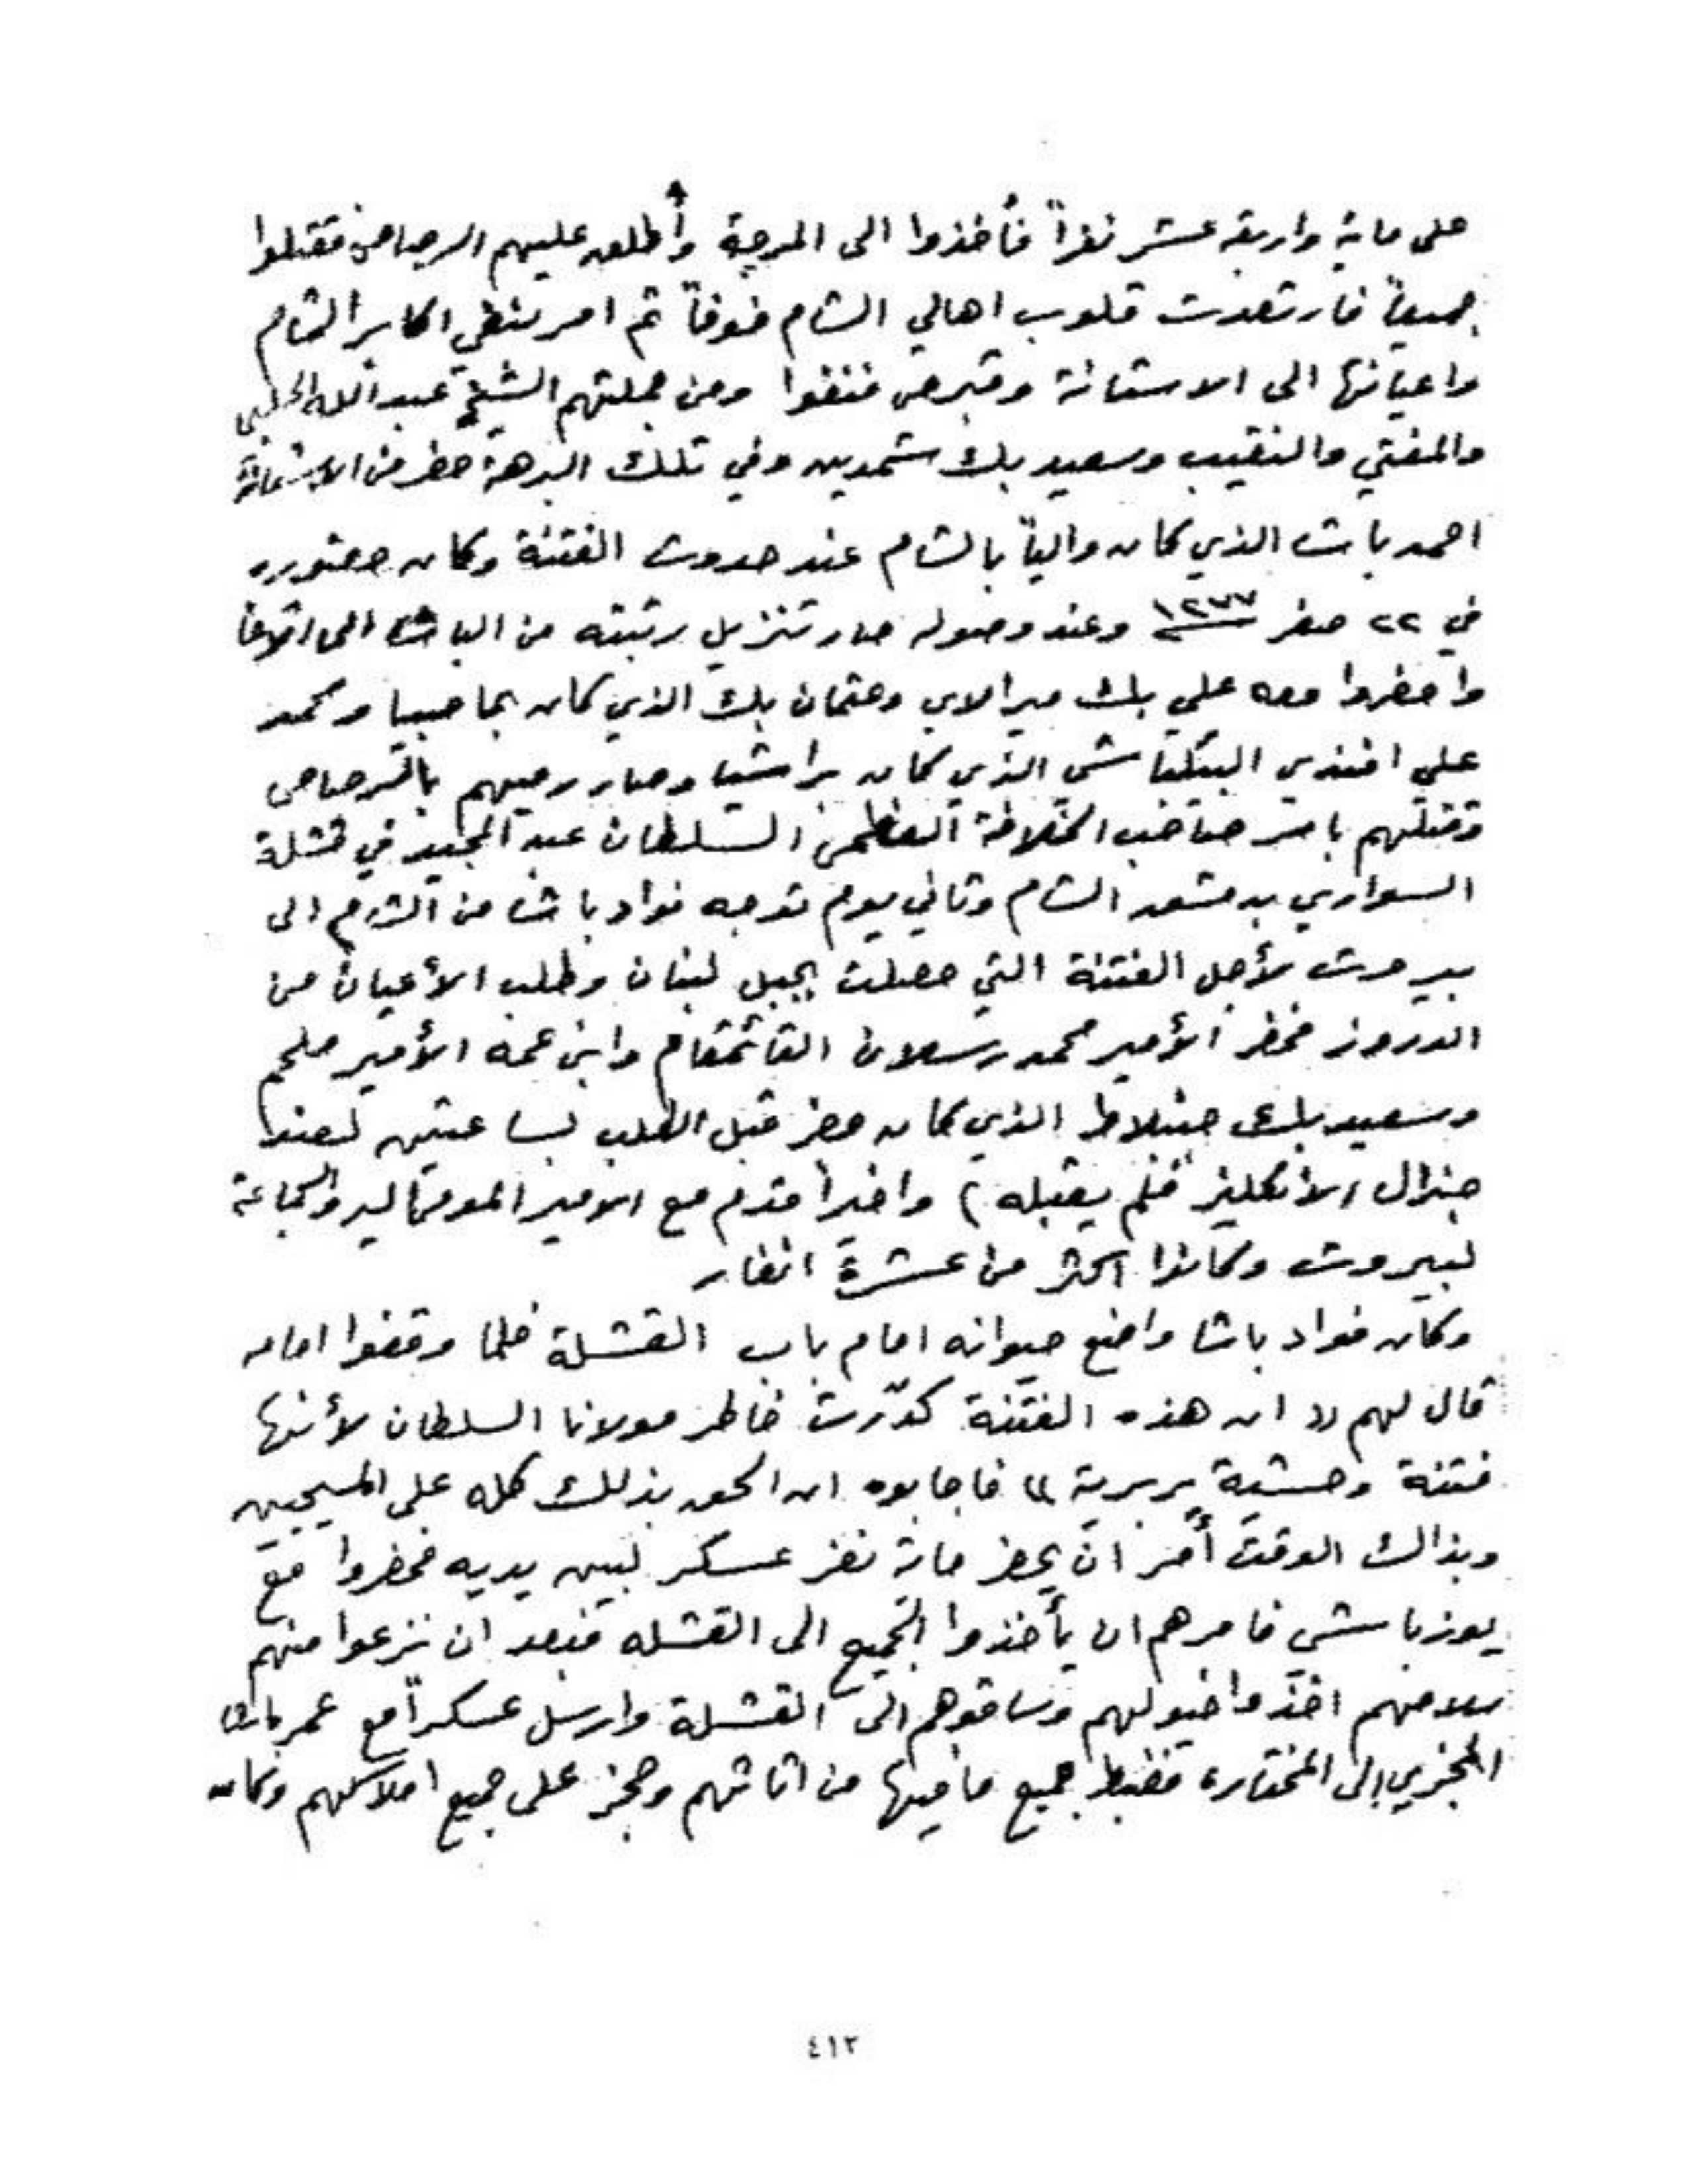 على ماية واربعة عشر نفراً فأُخذوا الى المرجة وأُطلق عليهم الرصاص فقتلوا
جميعاً فارتعدت قلوب اهالي الشام خوفاً ثم امر بنفي اكابر الشام
واعيانها الى الاستانة وقبرص فنفوا ومن جملتهم الشيخ عبد الله الحلبي
والمفتي والنقيب وسعيد بك شمدين وفي تلك البرهة حضر من الاستانة
احمد باشا الذي كان والياً بالشام عند حدوث الفتنة وكان حضوره
في ٢٢ صفر ١٢٧٧ وعند وصوله صار تنزيل رتبته من الباشا الى
واحضروا معه علي بك ميرالاي وعثمان بك الذي كان بحاصبيا ومحمد
علي افندي البيكباشي الذي كان براشيا وصار رميهم بالرصاص
وقتلهم بامر صاحب الخلافة العظمى السلطان عبد المجيد في قشلة
السواري بدمشق الشام وثاني يوم توجه فواد باشا من الشام الى
بيروت لأجل الفتنة التي حصلت بجبل لبنان وطلب الأعيان من
الدروز فحضر الأمير محمد رسلان القائمقام وابن عمه الأمير ملحم
وسعيد بك جنبلاط الذي كان حضر قبل الطلب بساعتين لعند
جنرال الانكليز فلم يقبله ) واخيراً قدم مع الامير المومااليه والجماعة
لبيروت وكانوا اكثر من عشرة انفار
وكان فواد باشا واضع حيوانه امام باب القشلة فلما وقفوا امامه
قال لهم « ان هذه الفتنة كدّرت خاطر مولانا السلطان لأنها
فتنة وحشية بربرية » فاجابوه ان الحق بذلك كله على المسيحيين
وبذالك الوقت أمر ان يحضر ماية نفر عسكر لبين يديه فحضروا مع
يوزباشي فامرهم ان يأخذوا الجميع الى القشله فبعد ان نزعوا منهم
سلاحهم اخذوا خيولهم وساقوهم الى القشلة وارسل عسكراً مع عمر باشا
الى المختاره فضبط جميع ما فيها من اثاثهم وحجز على جميع املاكهم وكان
٤١٢